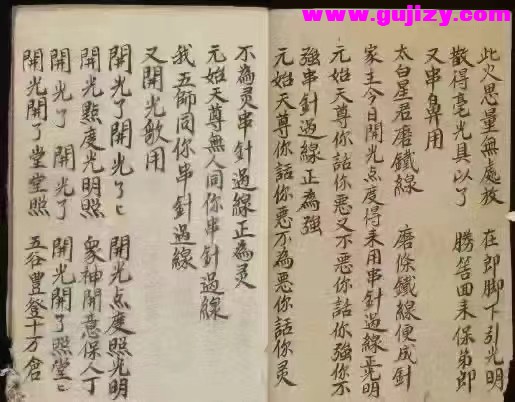 www.gujizy.com
此火思量無處放 在郎脚下引光明
散得毫光具以了 勝筶囬耒保弟郎
又串鼻用
太白星君磨鐵線 磨條鐵線便成針
家主今日開光点度得耒用串針過線正光明
元始天尊你話你悪又不悪你話你強你不
強串針過線正為強
元始天尊你話你悪不為悪你話你灵
不為灵串針過線正為灵
元始天尊無人同你串針過線
我五師同你串針過線
又開光散用
開光了開光了〻 開光点度照光明
開光點度光明照 衆神開意保人丁
開光了開光了 開光開了照堂〻
開光開了堂堂照 五谷豊登十万倉